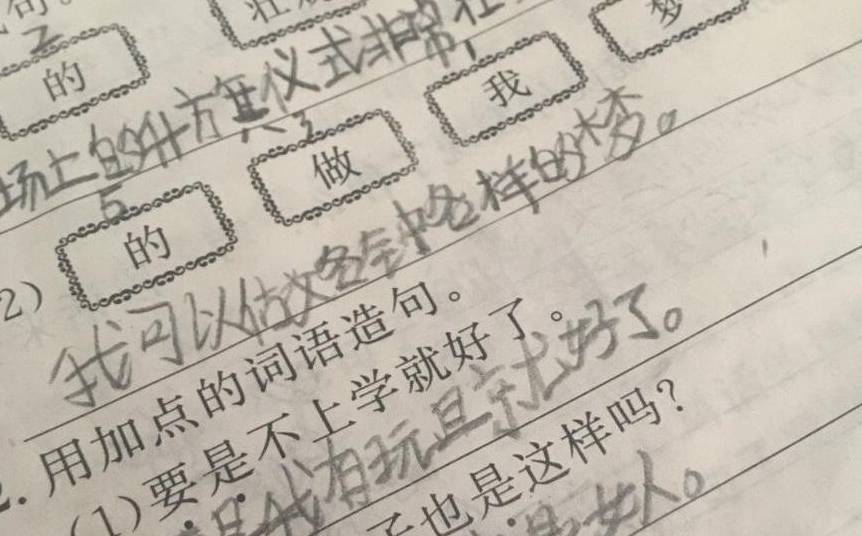 句。
的 壮
场上的升旗仪式非常壮
2) 的 做 我 梦
我可以做各种各样的梦。
2. 用加点的词语造句。
(1) 要是不上学就好了。
要是我有玩具就好了。
子也是这样吗?
是女人。